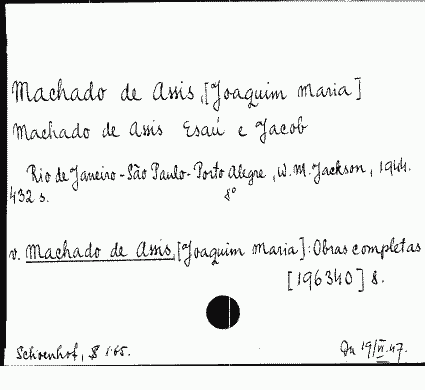 Machado de Assis, [Joaquim Maria]
Machado de Assis Esaú e Jacob
Rio de Janeiro - São Paulo - Porto Alegre, W. M. Jackson, 1944.
432 s. 8°
v. Machado de Assis, [Joaquim Maria]: Obras completas
[196340] 8.
Schoenhof, $ 1.65. Du 19/VI.47.